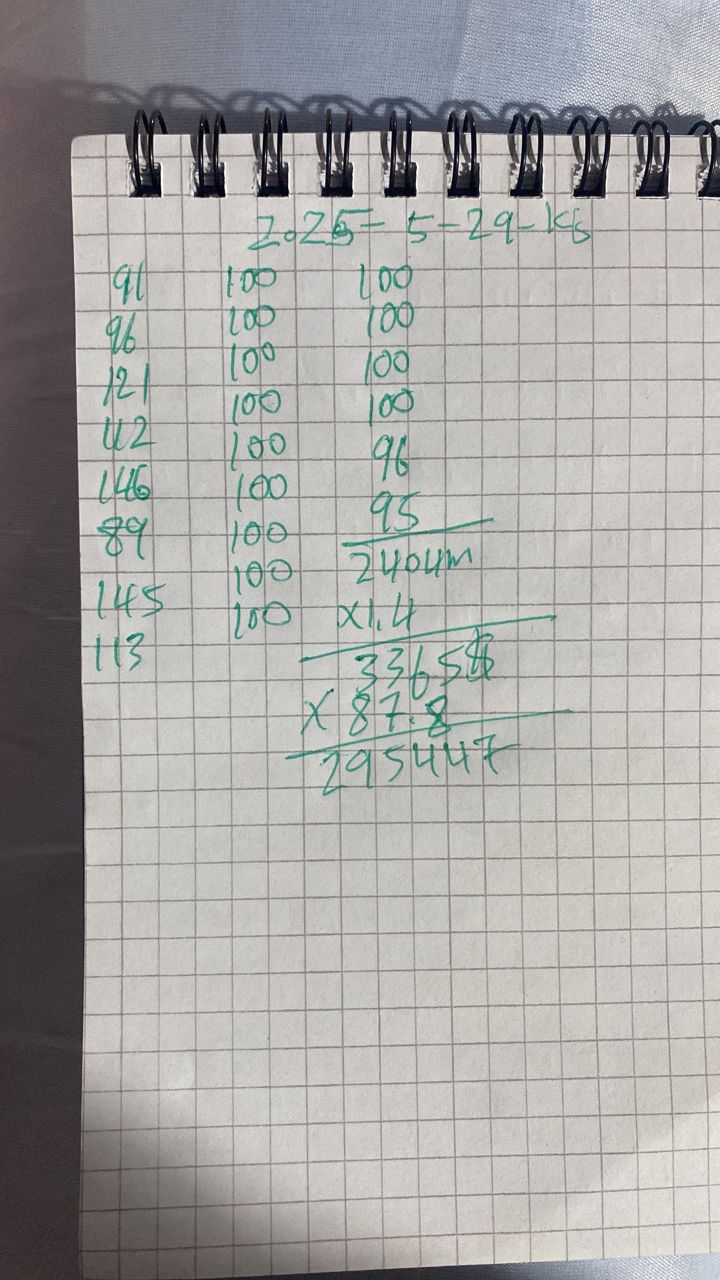 2025-5-29-KS
91 100 100
96 100 100
121 100 100
112 100 100
146 100 96
89 100 95
100
100 2404m
145 100 X1.4
113 3365$
X 87.8
295447